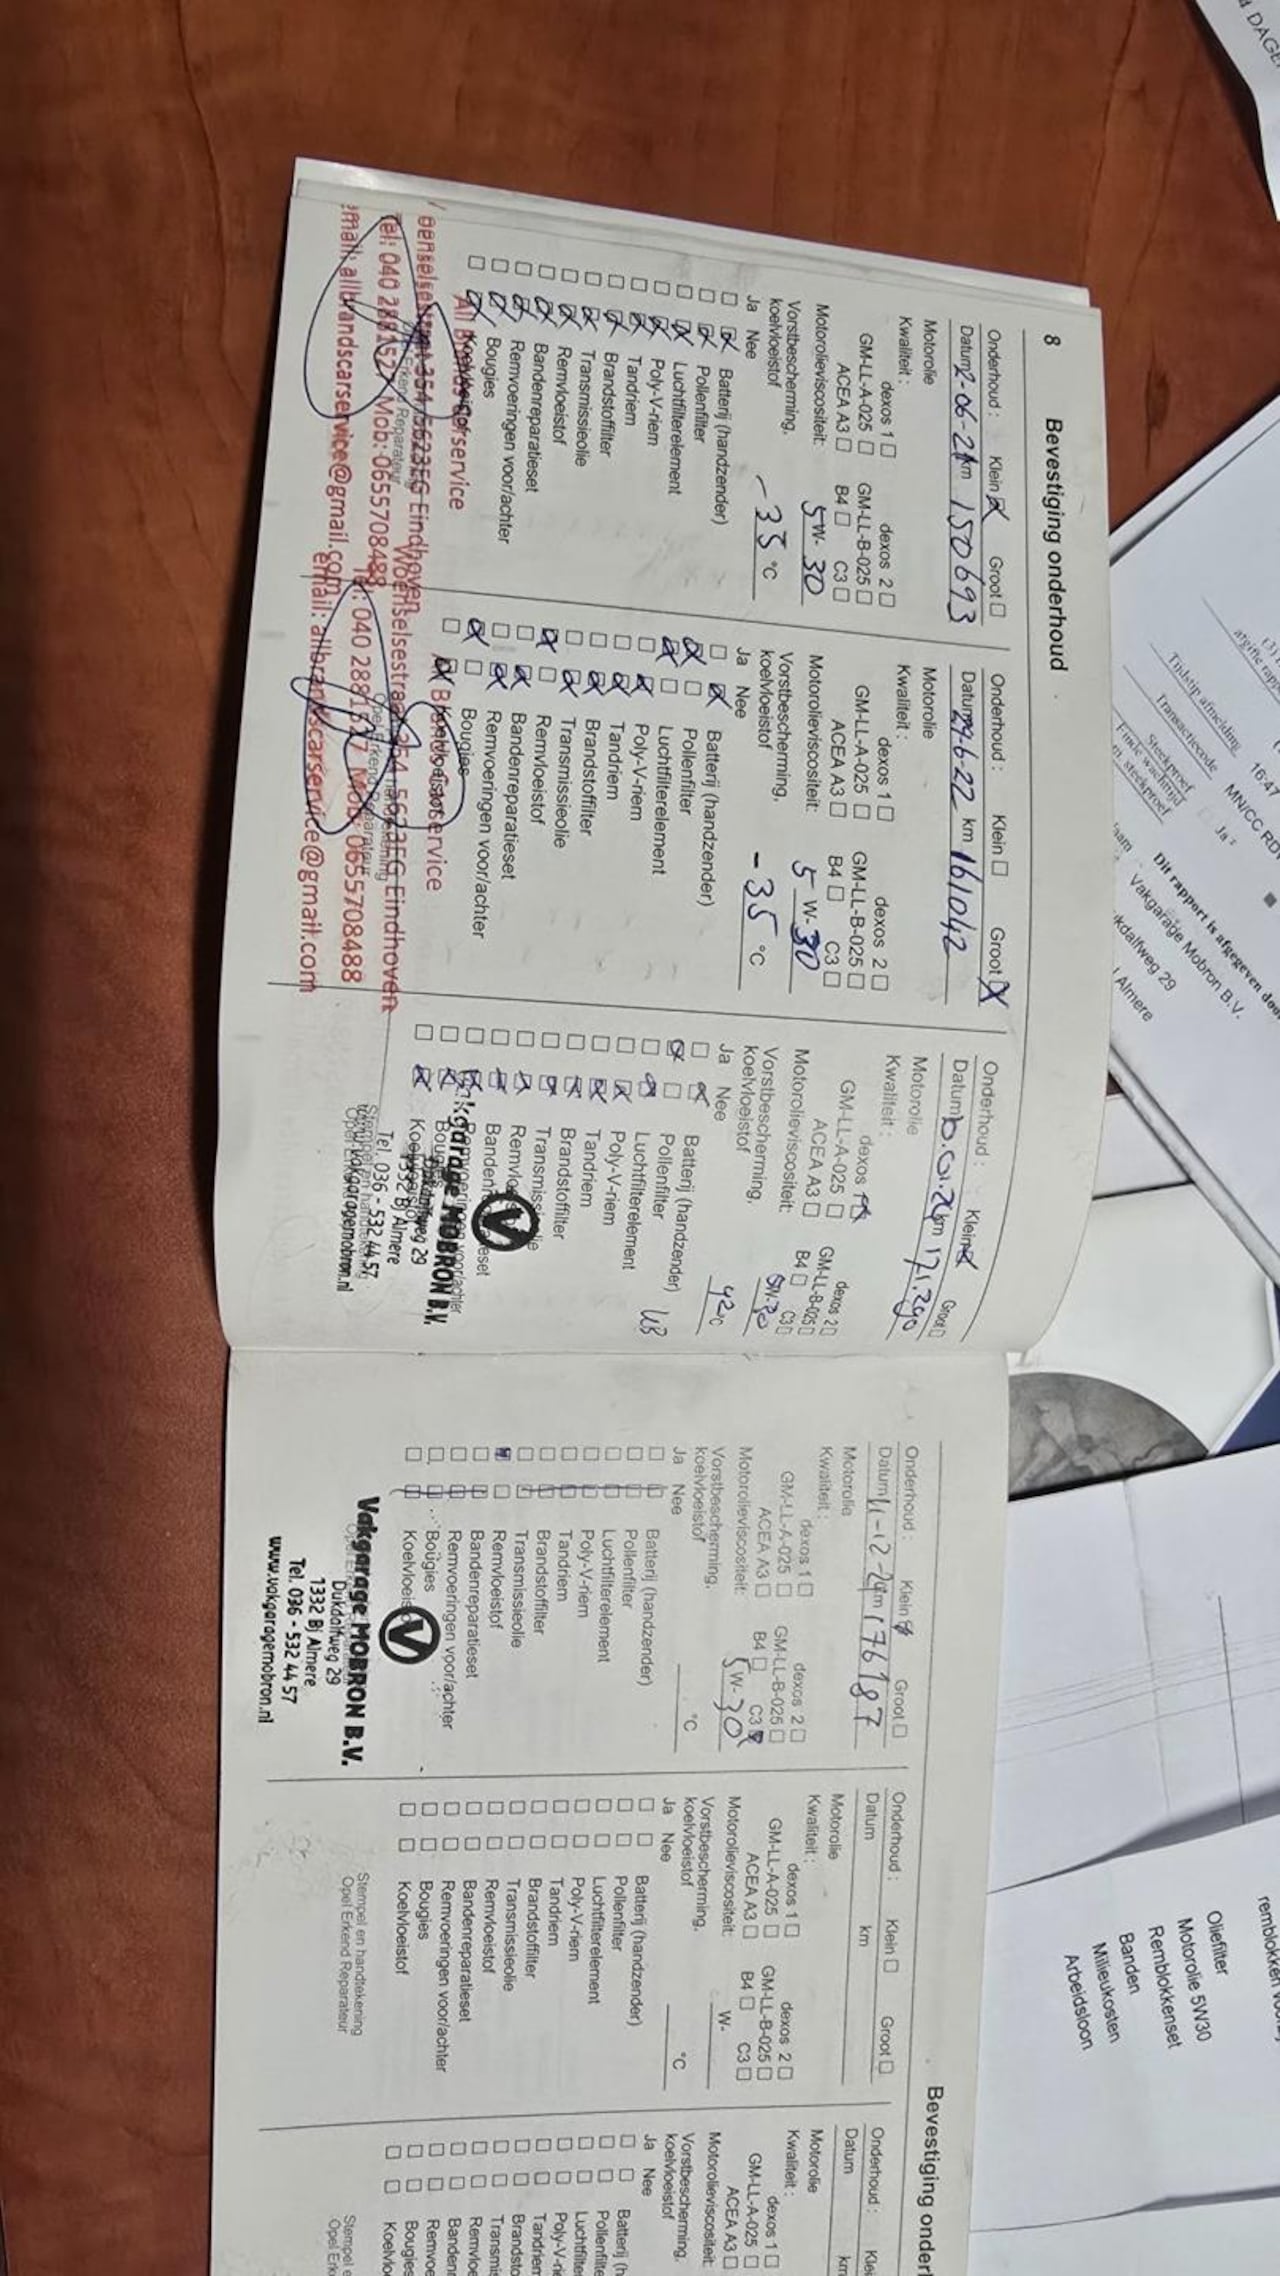 8 Bevestiging onderhoud
Onderhoud: Klein Groot
Datum 2-06-21 km 150693
Motorolie
Kwaliteit: dexos 1 dexos 2
GM-LL-A-025 GM-LL-B-025
ACEA A3 B4 C3
Motorolieviscositeit: 5W-30
Vorstbescherming,
koelvloeistof -35 °C
Ja Nee
Batterij (handzender)
Pollenfilter
Luchtfilterelement
Poly-V-riem
Tandriem
Brandstoffilter
Transmissieolie
Remvloeistof
Bandenreparatieset
Remvoeringen voor/achter
Bougies
Koelvloeistof
All Brands Carservice
Woenselsestraat 354 5623EG Eindhoven
Tel: 040 2881527 Mob: 0655708488
email: allbrandscarservice@gmail.com
Onderhoud: Klein Groot
Datum 29-6-22 km 161042
Motorolie
Kwaliteit: dexos 1 dexos 2
GM-LL-A-025 GM-LL-B-025
ACEA A3 B4 C3
Motorolieviscositeit: 5 W-30
Vorstbescherming,
koelvloeistof -35 °C
Ja Nee
Batterij (handzender)
Pollenfilter
Luchtfilterelement
Poly-V-riem
Tandriem
Brandstoffilter
Transmissieolie
Remvloeistof
Bandenreparatieset
Remvoeringen voor/achter
Bougies
Koelvloeistof
All Brands Carservice
Woenselsestraat 354 5623EG Eindhoven
Tel: 040 2881527 Mob: 0655708488
email: allbrandscarservice@gmail.com
Onderhoud: Klein Groot
Datum km 171.290
Motorolie
Kwaliteit: dexos 1 dexos 2
GM-LL-A-025 GM-LL-B-025
ACEA A3 B4 C3
Motorolieviscositeit: 5W-30
Vorstbescherming,
koelvloeistof 42 °C
Ja Nee
Batterij (handzender)
Pollenfilter
Luchtfilterelement
Poly-V-riem
Tandriem
Brandstoffilter
Transmissieolie
Remvloeistof
Bandenreparatieset
Remvoeringen voor/achter
Bougies
Koelvloeistof
Vakgarage MOBRON B.V.
Dukdalfweg 29
1332 BJ Almere
Tel. 036 - 532 44 57
www.vakgaragemobron.nl
Onderhoud: Klein Groot
Datum 11-12-24 km 176187
Motorolie
Kwaliteit: dexos 1 dexos 2
GM-LL-A-025 GM-LL-B-025
ACEA A3 B4 C3
Motorolieviscositeit: 5W-30
Vorstbescherming,
koelvloeistof °C
Ja Nee
Batterij (handzender)
Pollenfilter
Luchtfilterelement
Poly-V-riem
Tandriem
Brandstoffilter
Transmissieolie
Remvloeistof
Bandenreparatieset
Remvoeringen voor/achter
Bougies
Koelvloeistof
Vakgarage MOBRON B.V.
Dukdalfweg 29
1332 BJ Almere
Tel. 036 - 532 44 57
www.vakgaragemobron.nl
Bevestiging onderh
Onderhoud: Klein Groot
Datum km
Motorolie
Kwaliteit: dexos 1 dexos 2
GM-LL-A-025 GM-LL-B-025
ACEA A3 B4 C3
Motorolieviscositeit: W-
Vorstbescherming,
koelvloeistof °C
Ja Nee
Batterij (handzender)
Pollenfilter
Luchtfilterelement
Poly-V-riem
Tandriem
Brandstoffilter
Transmissieolie
Remvloeistof
Bandenreparatieset
Remvoeringen voor/achter
Bougies
Koelvloeistof
Stempel en handtekening
Opel Erkend Reparateur
Onderhoud: Klei
Datum km
Motorolie
Kwaliteit: dexos 1
GM-LL-A-025
ACEA A3
Motorolieviscositeit:
Vorstbescherming,
koelvloeistof
Ja Nee
Batterij (h
Pollenfilte
Luchtfilte
Poly-V-ri
Tandriem
Brandsto
Transmis
Remvloe
Banden
Remvoe
Bougies
Koelvlo
Stempel e
Opel Erk
Tijdstip afmelding 16:47
Transactiecode MN/CC RD
Steekproef Ja
Einde wachttijd
steekproef
Dit rapport is afgegeven door
Vakgarage Mobron B.V.
kdalfweg 29
Almere
4 DAGE
remblokken
Oliefilter
Motorolie 5W30
Remblokkenset
Banden
Milieukosten
Arbeidsloon